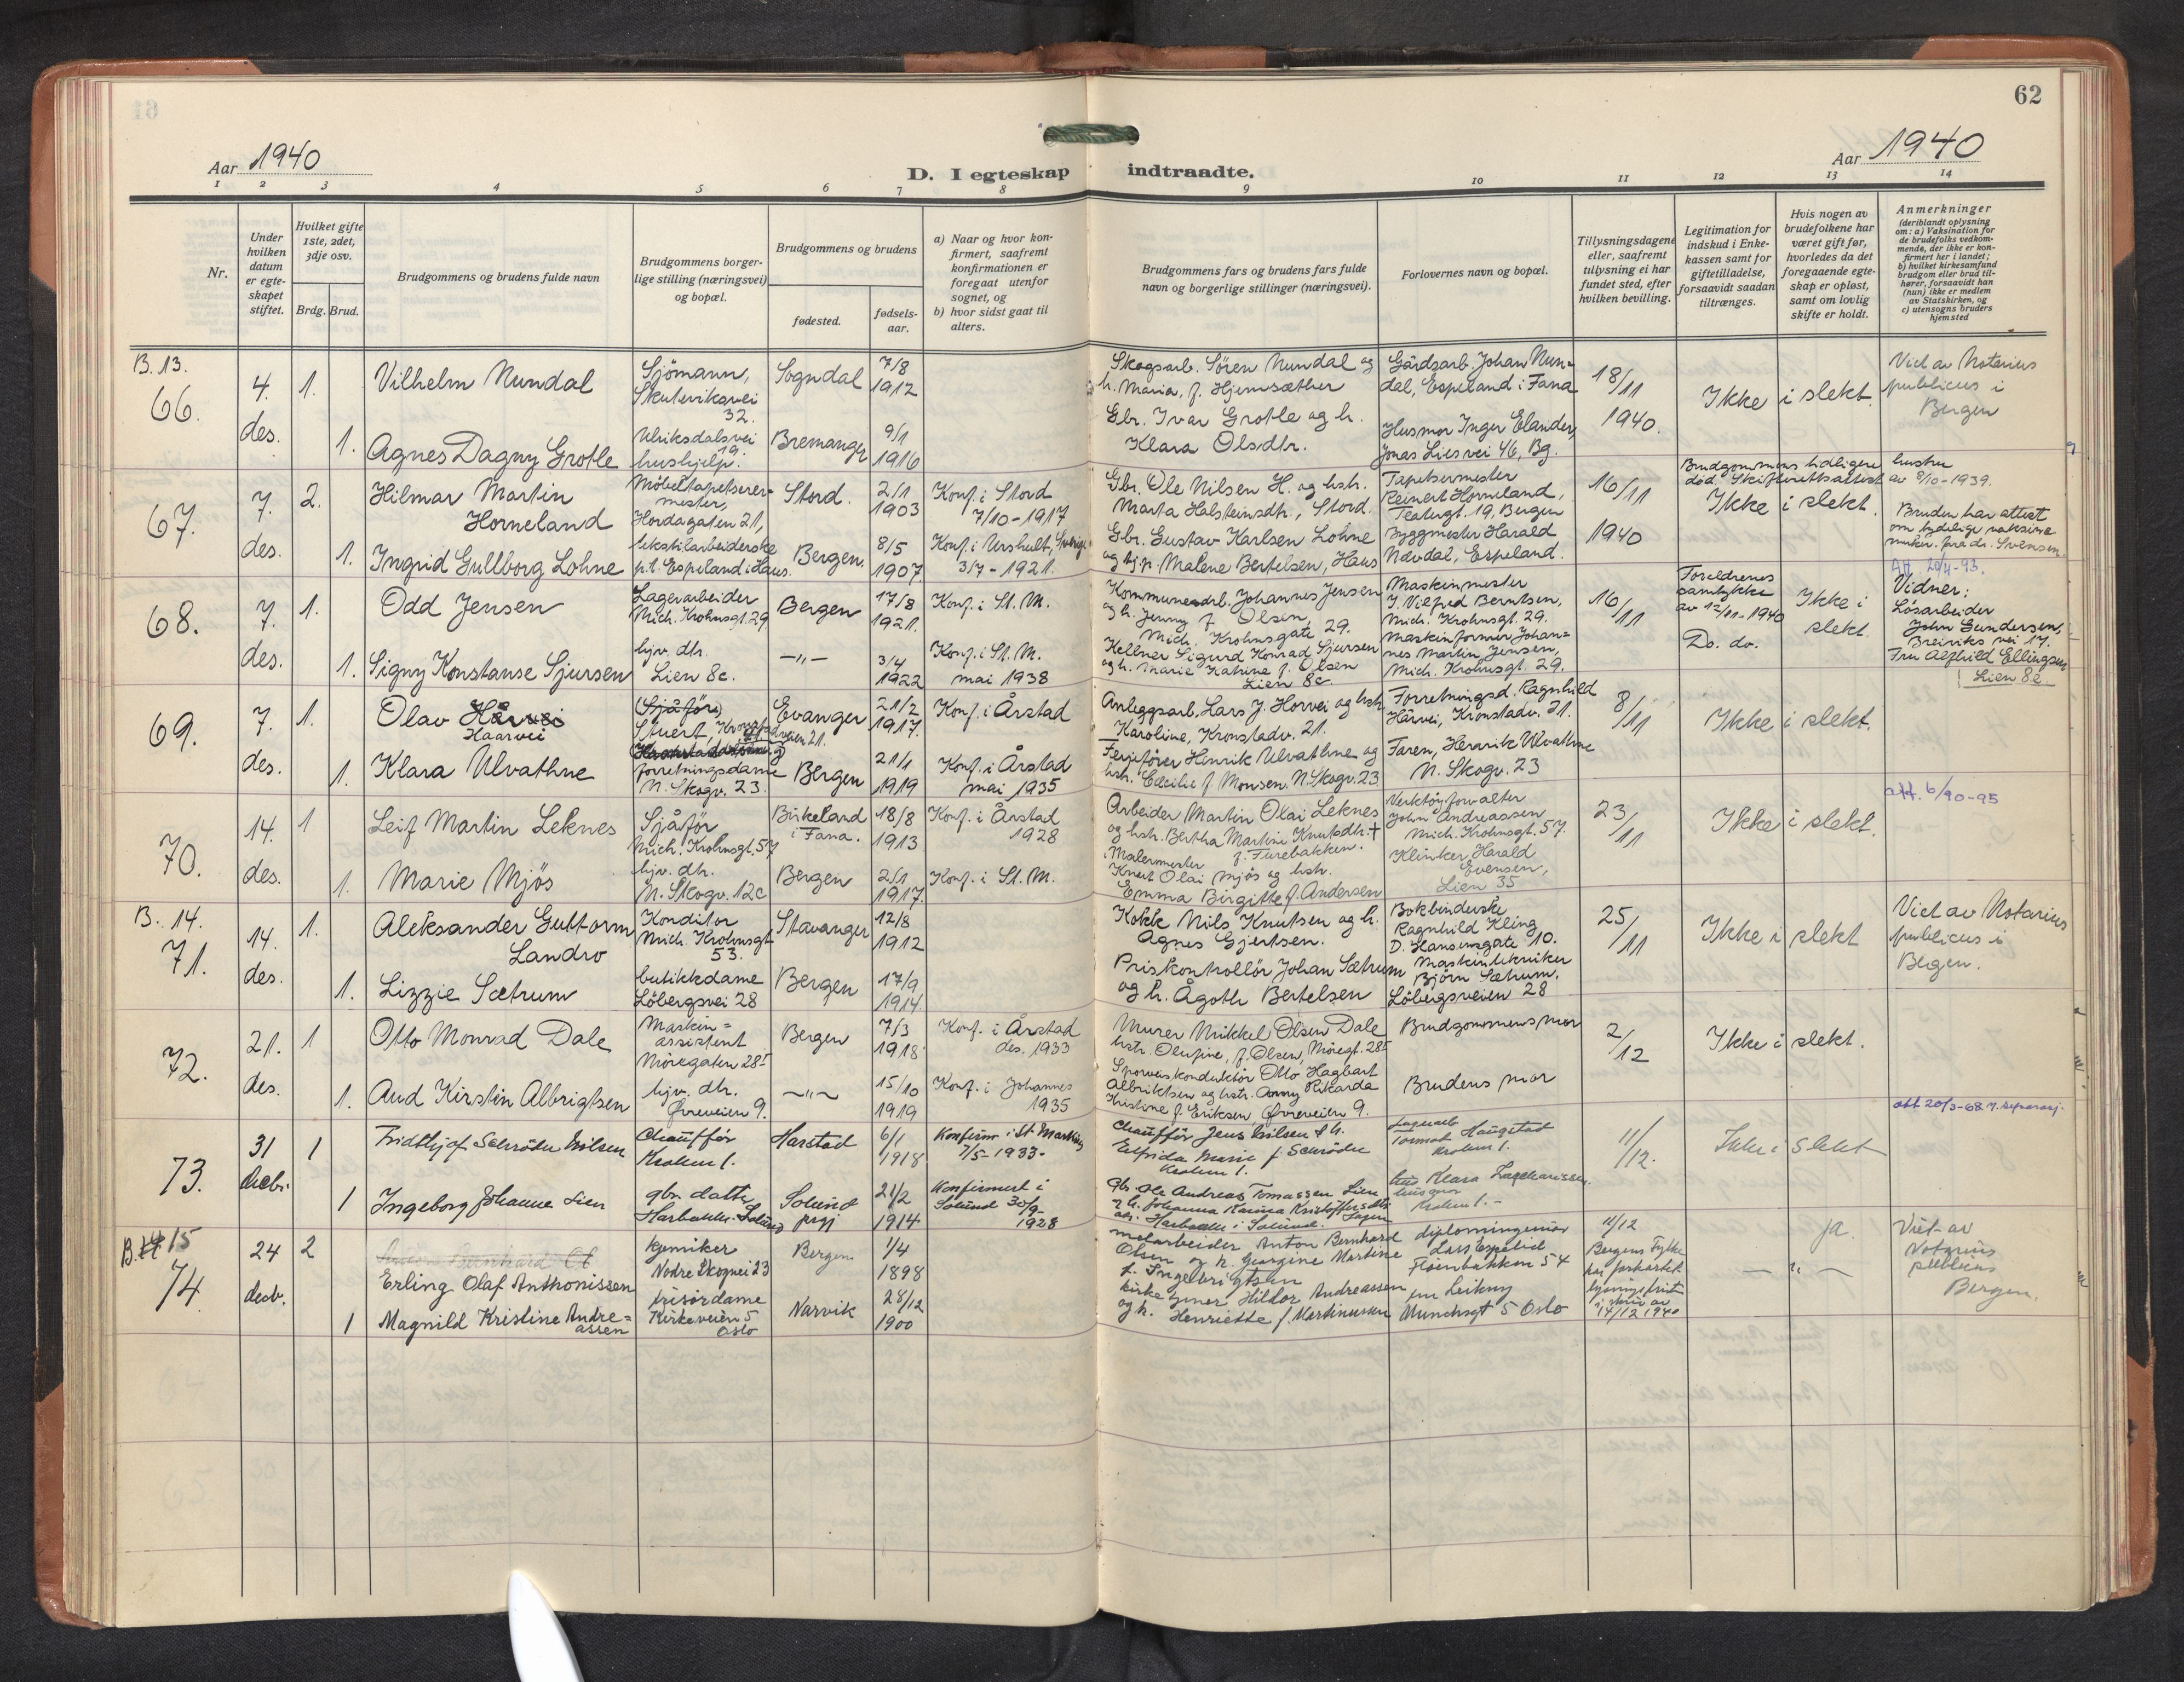 62
Aar 1940
Aar 1940
D. I egteskap indtraadte.
1 2 3 4 5 6 7 8 9 10 11 12 13 14
Nr.
Under hvilken datum er egteskapet stiftet.
Hvilket gifte 1ste, 2det, 3dje osv.
Brdg. Brud.
Brudgommens og brudens fulde navn
Brudgommens borgerlige stilling (næringsvei) og bopæl.
Brudgommens og brudens
fødested.
fødselsaar.
a) Naar og hvor konfirmert, saafremt konfirmationen er foregaat utenfor sognet, og
b) hvor sidst gaat til alters.
Brudgommens fars og brudens fars fulde navn og borgerlige stillinger (næringsvei).
Forlovernes navn og bopæl.
Tillysningsdagene eller, saafremt tillysning ei har fundet sted, efter hvilken bevilling.
Legitimation for indskud i Enkekassen samt for giftetilladelse, forsaavidt saadan tiltrænges.
Hvis nogen av brudefolkene har været gift før, hvorledes da det foregaaende egteskap er opløst, samt om lovlig skifte er holdt.
Anmerkninger
(deriblandt oplysning om: a) Vaksination for de brudefolks vedkommende, der ikke er konfirmert her i landet; b) hvilket kirkesamfund brudgom eller brud tilhører, forsaavidt han (hun) ikke er medlem av Statskirken, og c) utensogns bruders hjemsted
B. 13.
66.
4. des.
1.
Vilhelm Nundal
Sjömann, Skuteviksvei 32.
Sogndal
7/8 1912
Skogsarb. Sören Nundal og h. Maria, f. Hjemsæther
Gårdsarb. Johan Nundal, Espeland i Fana
18/11 1940.
Ikke i slekt.
Viet av Notarius publicus i Bergen
1.
Agnes Dagny Grotle
Ulriksdalsvei 19. hushjelp.
Bremanger
9/1 1916
Gbr. Ivar Grotle og h. Klara Olsdtr.
Husmor Inger Elander, Jonas Lies vei 46, Bg.
67.
7. des.
2.
Hilmar Martin Horneland
Möbeltapetserermester, Hordagaten 21,
Stord.
2/1 1903
Konf. i Stord 7/10-1917
Gbr. Ole Nilsen H. og hstr. Marta Halsteinsdtr., Stord.
Tapetsermester Reinert Horneland, Teatergt. 19, Bergen
16/11 1940
Brudgommens tidligere hustru död. Skifterettsattest av 9/10-1939.
Ikke i slekt.
1.
Ingrid Gullborg Lohne
tekstilarbeiderske p.t. Espeland i Haus.
Bergen.
8/5 1907
Konf. i Urshult, Sverige 3/7-1921.
Gbr. Gustav Karlsen Lohne og hj.p. Malene Bertelsen, Haus
Byggmester Harald Nævdal, Espeland.
Bruden har attest om tydelige vaksine merker fra dr. Svensen.
68.
7. des.
1.
Odd Jensen
Lagerarbeider Mich. Krohnsgt. 29
Bergen
17/8 1921.
Konf. i St. M.
Kommunearb. Johannes Jensen og h. Jenny f. Olsen, Mich. Krohnsgate 29.
Maskinmester J. Vilfred Berntsen, Mich. Krohnsgt. 29.
16/11
Foreldrenes samtykke av 12/11-1940
Do. do.
Ikke i slekt.
Att. 20/4-93.
Vidner: Lösarbeider John Gundersen, Breiviks vei 17. Fru Alfhild Ellingsen Lien 8e
1.
Signy Konstanse Sjursen
hjv. dtr. Lien 8c.
—"—
3/4 1922
Konf. i St. M. mai 1938
Kellner Sigurd Konrad Sjursen og h. Marie Katrine f. Olsen Lien 8c
Maskinformer Johannes Martin Jensen, Mich. Krohnsgt. 29.
69.
7. des.
1.
Olav Hårvei
Haarvei
(Sjåför) Stuert, Kronstadveien 21.
Evanger
21/2 1917.
Konf. i Årstad
Anleggsarb. Lars J. Horvei og hstr. Karoline, Kronstadv. 21.
Forretningsd. Ragnhild Hårvei, Kronstadv. 21.
8/11
Ikke i slekt.
1.
Klara Ulvathne
forretningsdame N. Skogv. 23.
Bergen
21/1 1919
Konf. i Årstad mai 1935
Ferjefører Henrik Ulvathne og hstr. Cecilie f. Monsen. N. Skogv. 23
Faren, Henrik Ulvathne N. Skogv. 23
70.
14. des.
1
Leif Martin Leknes
Sjåför Mich. Krohnsgt. 57
Birkeland i Fana.
18/8 1913
Konf. i Årstad 1928
Arbeider Martin Olai Leknes og hstr. Bertha Martine Knutsdtr. + f. Furebakken.
Verktöyforvalter John Andreassen Mich. Krohnsgt. 57.
23/11
Ikke i slekt.
att. 6/90-95
1.
Marie Mjös
hjv. dtr. N. Skogv. 12c
Bergen
2/1 1917.
Konf. i St. M.
Malermester Knut Olai Mjös og hstr. Emma Birgitte f. Andersen
Klinker Harald Evensen, Lien 35
B. 14.
71.
14. des.
1.
Aleksander Guttorm Landro
Konditor Mich. Krohnsgt 53.
Stavanger
12/8 1912
Kokk Nils Knutsen og h. Agnes Gjertsen.
Bokbinderske Ragnhild Kling D. Hansensgate 10.
25/11
Ikke i slekt
Viet av Notarius publicus i Begen.
1.
Lizzie Sætrum
butikkdame Löbergsvei 28
Bergen
17/9 1914.
Priskontrollör Johan Sætrum og h. Ågoth Bertelsen
Maskintekniker Björn Sætrum, Löbergsveien 28
72.
21. des.
1
Otto Monrad Dale
Maskinassistent Möregaten 28 I
Bergen
7/3 1918
Konf. i Årstad des. 1933
Murer Mikkel Olsen Dale hstr. Olufine, f. Olsen, Möregt. 28 I
Brudgommens mor
2/12
Ikke i slekt.
1.
Aud Kirstin Albrigtsen
hjv. dtr. Øvreveien 9.
—"—
15/10 1919
Konf. i Johannes 1935
Sporveiskonduktör Otto Hagbart Albriktsen og hstr. Anny Rikarda Kristine f. Eriksen, Øvreveien 9.
Brudens mor
73.
31 decbr.
1
Fridthjof Schrøder Nilsen
Chauffør Krohnv 1.
Harstad
6/1 1918
Konfirm. i St Markus 7/5-1933-
Chauffør Jens Nilsen & h. Elfrida Marie f. Schrøder Krohnv 1.
Lagerarb Tormod Haugstad Krohnv 1.
11/12.
Ikke i slekt
att 20/3-68 v. separasj.
1
Ingeborg Johanne Lien
gbr. datter Harbakke. Solund
Solund prgj
21/2 1914
Konfirmert i Solund 30/9-1928
gbr. Ole Andreas Tomassen Lien og h. Johanna Karina Kristoffersdtr adr. Harbakke i Solund. Sogn
Klara Zachariassen husmor Krohnv 1.-
B. 15
74.
24 decbr.
2
Erling Olaf Anthonissen
kjemiker Nedre Skogvei 23
Bergen
1/4 1898
metarbeider Anton Bernhard Olsen og h. Georgine Martine f. Ingebrigtsen
diplomingeniør Lars Espelid Fløienbakken 54
11/12 Bergens Fylke har forkortet lysningsfrist i skriv av 17/12 1940
— " —
ja.
Viet av Notarius publicus Bergen.
1
Magnild Kristine Andreassen
frisørdame Kirkeveien 5 Oslo
Narvik
28/12 1900
kirketjener Hildor Andreassen og h. Henriette f. Martinussen
fru Leikny Munchsgt 5 Oslo